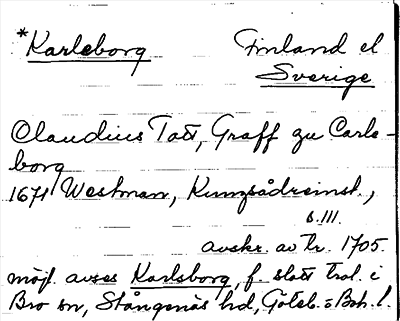 *Karlsborg Finland el
Sverige
Claudius Tott, Graff zu Carls-
borg
1671 Westman, Kunzsådreinst.,
s. 111.
avskr. av Tr. 1705.
möjl. avses Karlsborg, f. slott trol. i
Bro sn, Stångenäs hd, Göteb. o Boh. l.